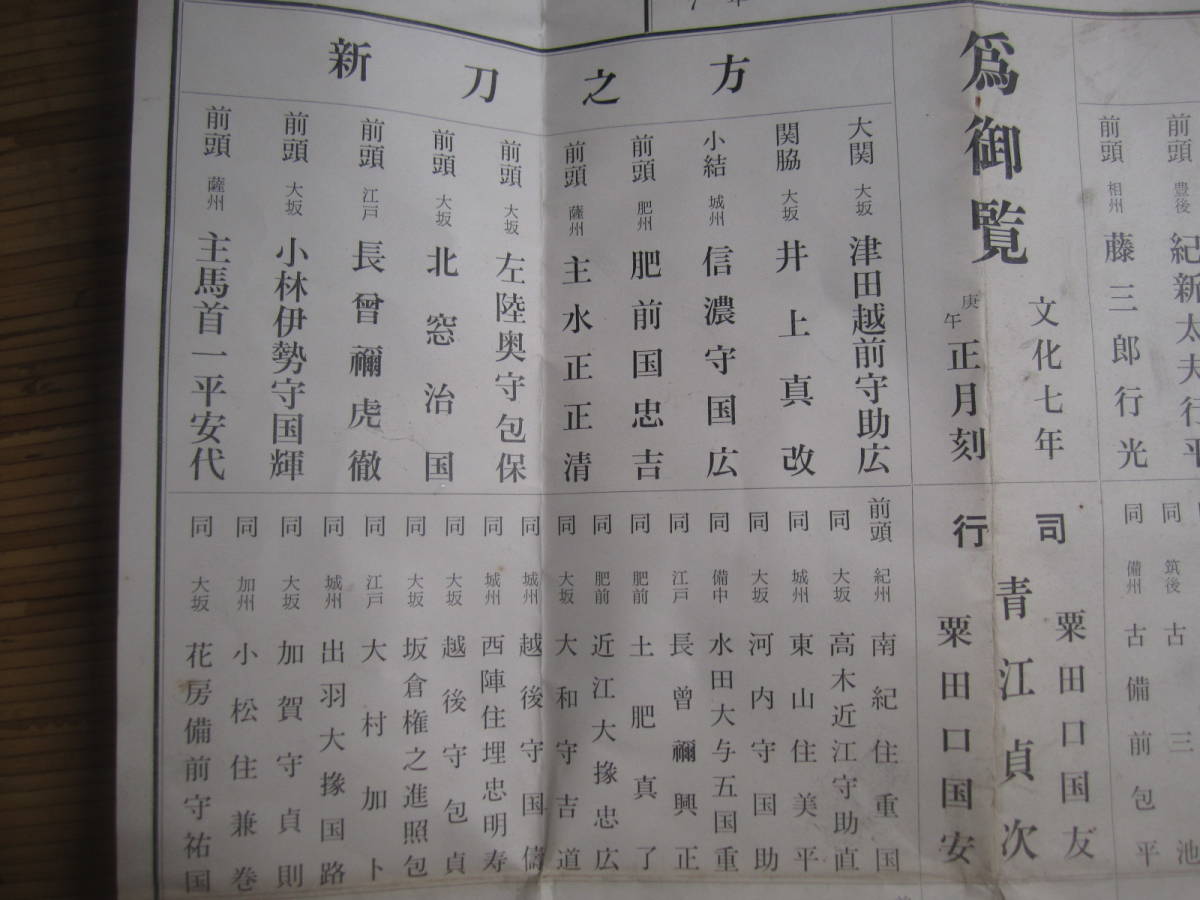 前頭 豊後 紀新太夫行平
前頭 相州 藤三郎行光
同 筑後 三池
同 備州 古備前包平
為御覧
文化七年
庚午 正月刻
行司
粟田口国友
青江貞次
粟田口国安
新刀之方
大関 大坂 津田越前守助広
関脇 大坂 井上真改
小結 城州 信濃守国広
前頭 肥州 肥前国忠吉
前頭 薩州 主水正正清
前頭 大坂 左陸奥守包保
前頭 大坂 北窓治国
前頭 江戸 長曾禰虎徹
前頭 大坂 小林伊勢守国輝
前頭 薩州 主馬首一平安代
前頭 紀州 南紀住重国
同 大坂 高木近江守助直
同 城州 東山住美平
同 大坂 河内守国助
同 備中 水田大与五国重
同 江戸 長曾禰興正
同 肥前 土肥真了
同 肥前 近江大掾忠広
同 大坂 大和守吉道
同 城州 越後守国儔
同 城州 西陣住埋忠明寿
同 大坂 越後守包貞
同 大坂 坂倉権之進照包
同 江戸 大村加卜
同 城州 出羽大掾国路
同 大坂 加賀守貞則
同 加州 小松住兼巻
同 大坂 花房備前守祐国